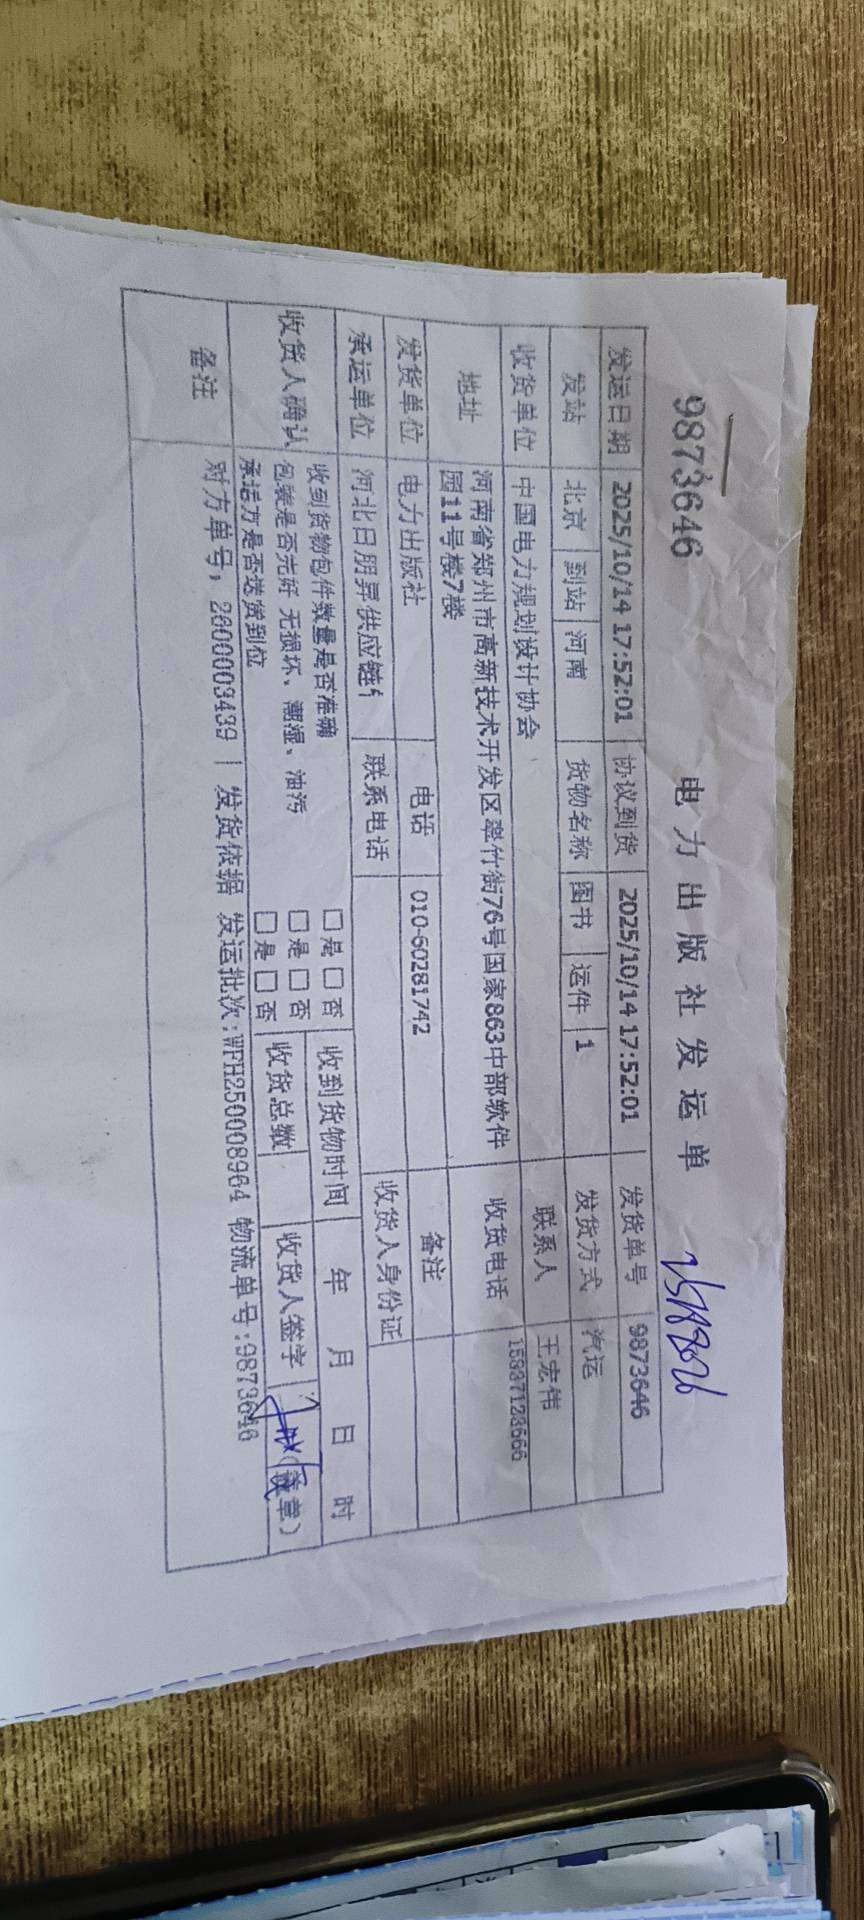 9873646 电力出版社发运单
发运日期 2025/10/14 17:52:01 协议到货 2025/10/14 17:52:01 发货单号 9873646
发站 北京 到站 河南 货物名称 图书 运件 1 发货方式 汽运
收货单位 中国电力规划设计协会 联系人 王宏伟
地址 河南省郑州市高新技术开发区翠竹街76号国家863中部软件 收货电话 15837123666
园11号楼7楼
发货单位 电力出版社 电话 010-60281742 备注
承运单位 河北日朋昇供应链 联系电话 收货人身份证
收货人确认 收到货物包件数量是否准确 □是 □否 收到货物时间 年 月 日 时
包装是否完好 无损坏、潮湿、油污 □是 □否
承运方是否送货到位 □是 □否 收货总数 收货人签字 (盖章)
备注 对方单号, 2600003439 | 发货依据 发运批次:WPH250008964 物流单号:9873646